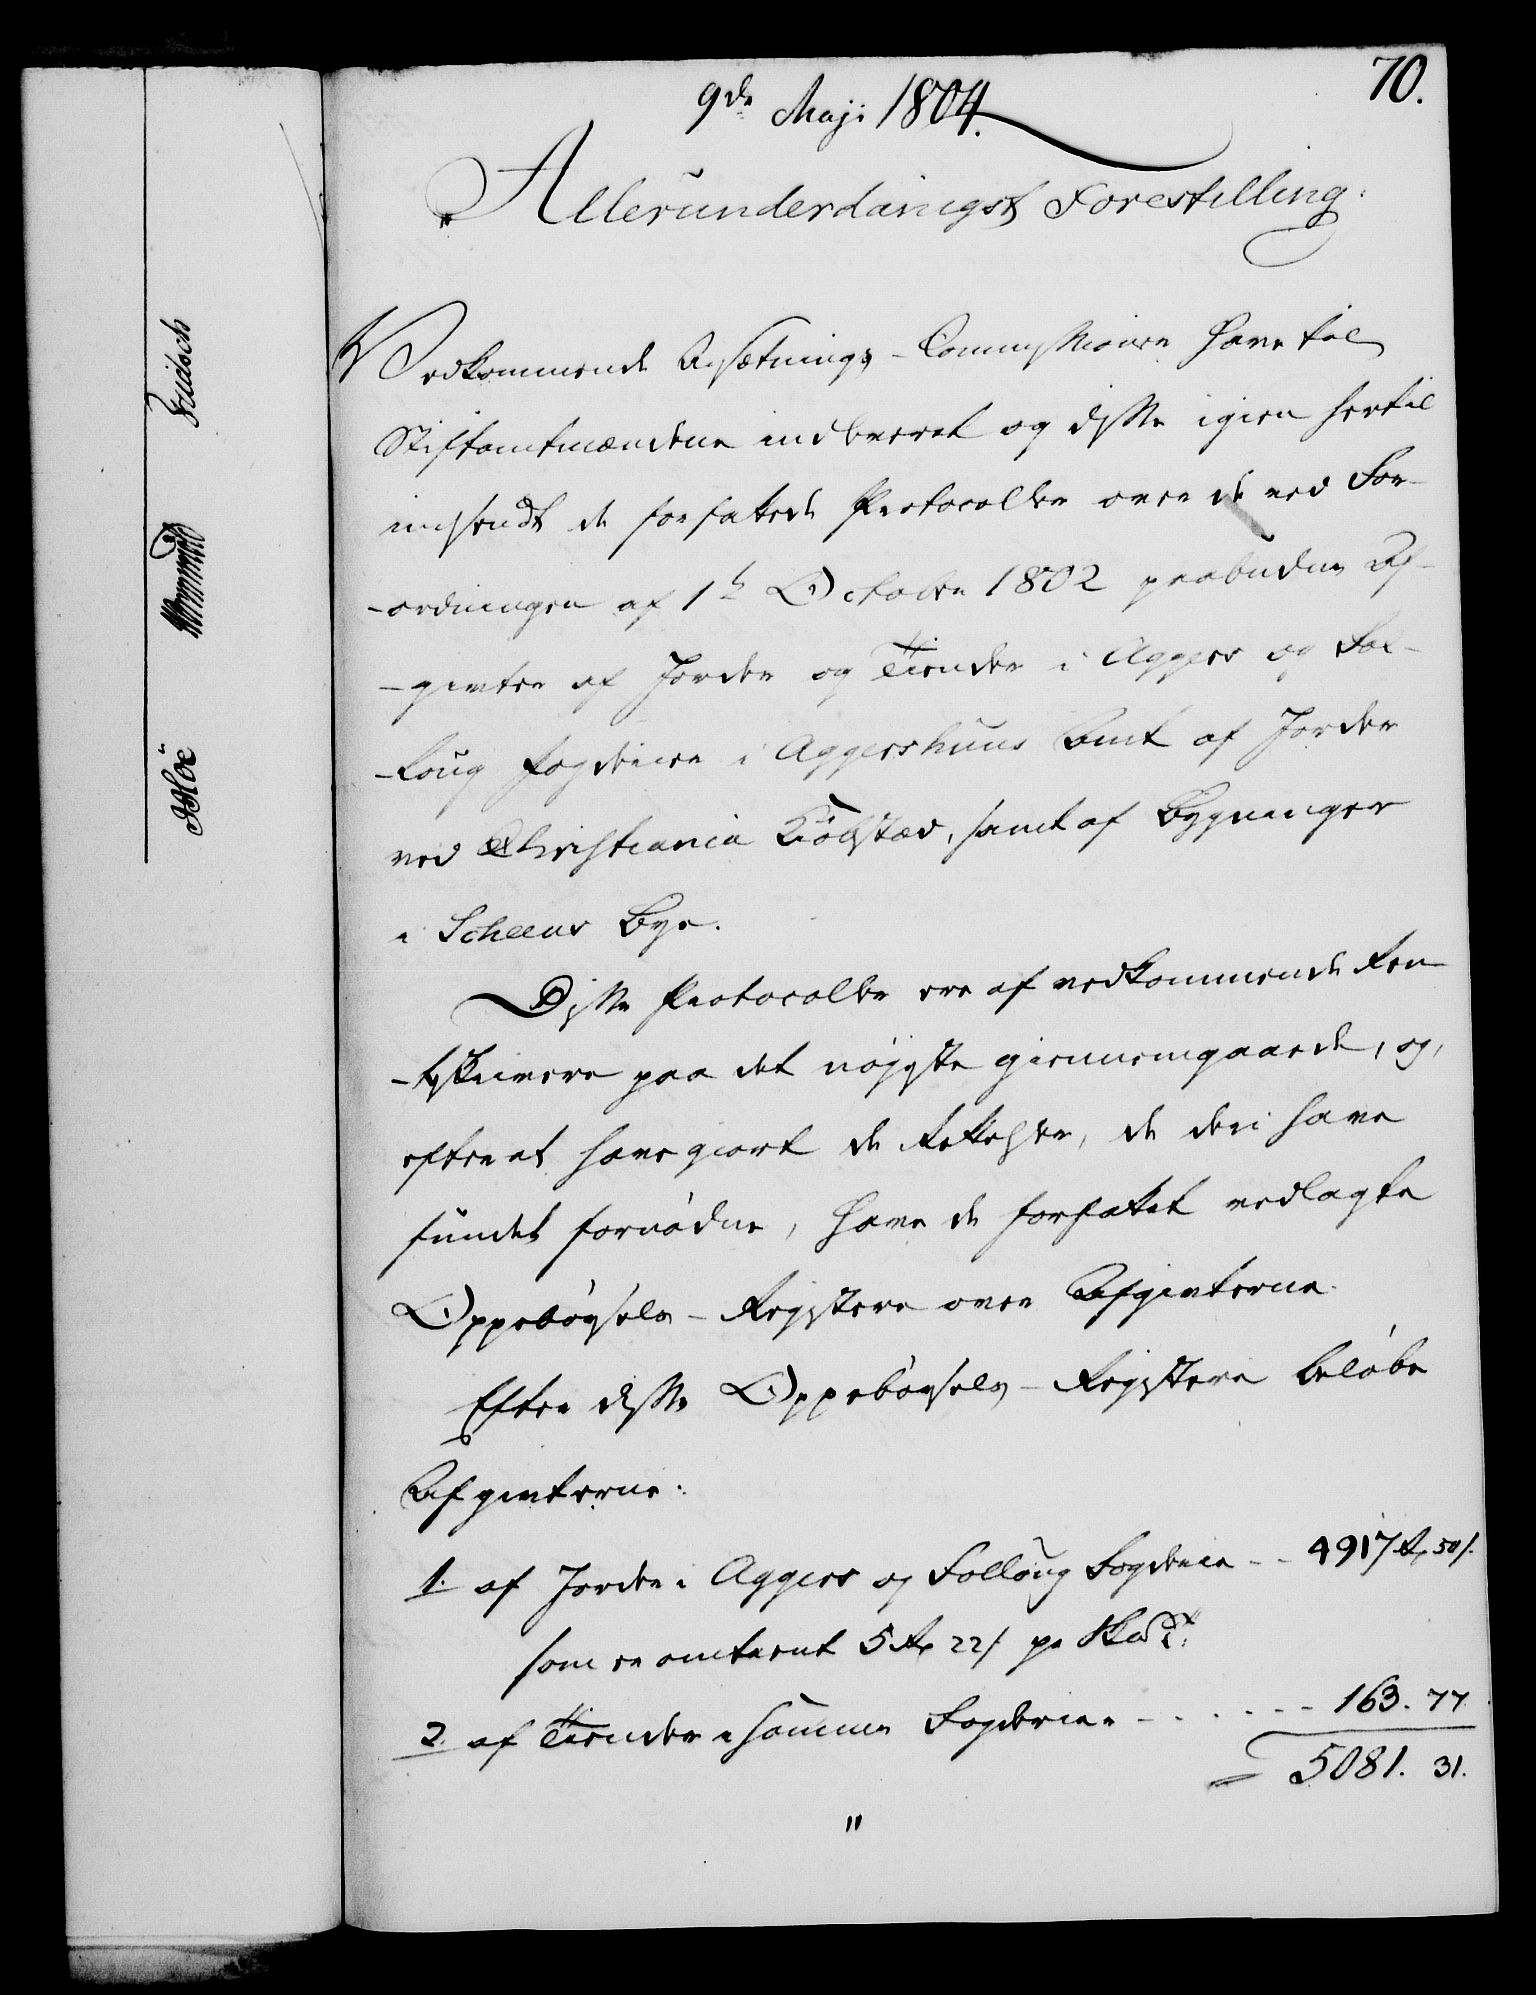 70.
9de Maji 1804.
Allerunderdanigst Forestilling.
Vedkommende Ansætnings-Commissioner have til
Stiftamtmændene indberet og disse igien hertil
indsendt de forfattede Protocoller over de ved For-
-ordningen af 1te October 1802 paabudne Af-
-givter af Jorder og Tiender i Aggers og Fol-
-loug Fogderier i Aggershuus Amt af Jorder
ved Christiania Kiöbstæd, samt af Bygninger
i Scheens Bye.
Disse Protocoller ere af vedkommende Ren-
-teskrivere paa det nöjeste giennemgaaede, og,
efter at have giort de Rettelser, de deri have
fundet fornödne, have de forfattet vedlagte
Oppebörsels-Registere over Afgivterne.
Efter disse Oppebörsels-Registere belöbe
Afgivterne:
1. af Jorder i Aggers og Folloug Fogderie - - 4917 Rd 50 s.
som er omtrent 5 Rd 22 s pr
2. af Tiender i samme Fogderier - . . . . - 163. 77
= 5081. 31.
"
Fridsch
Möe